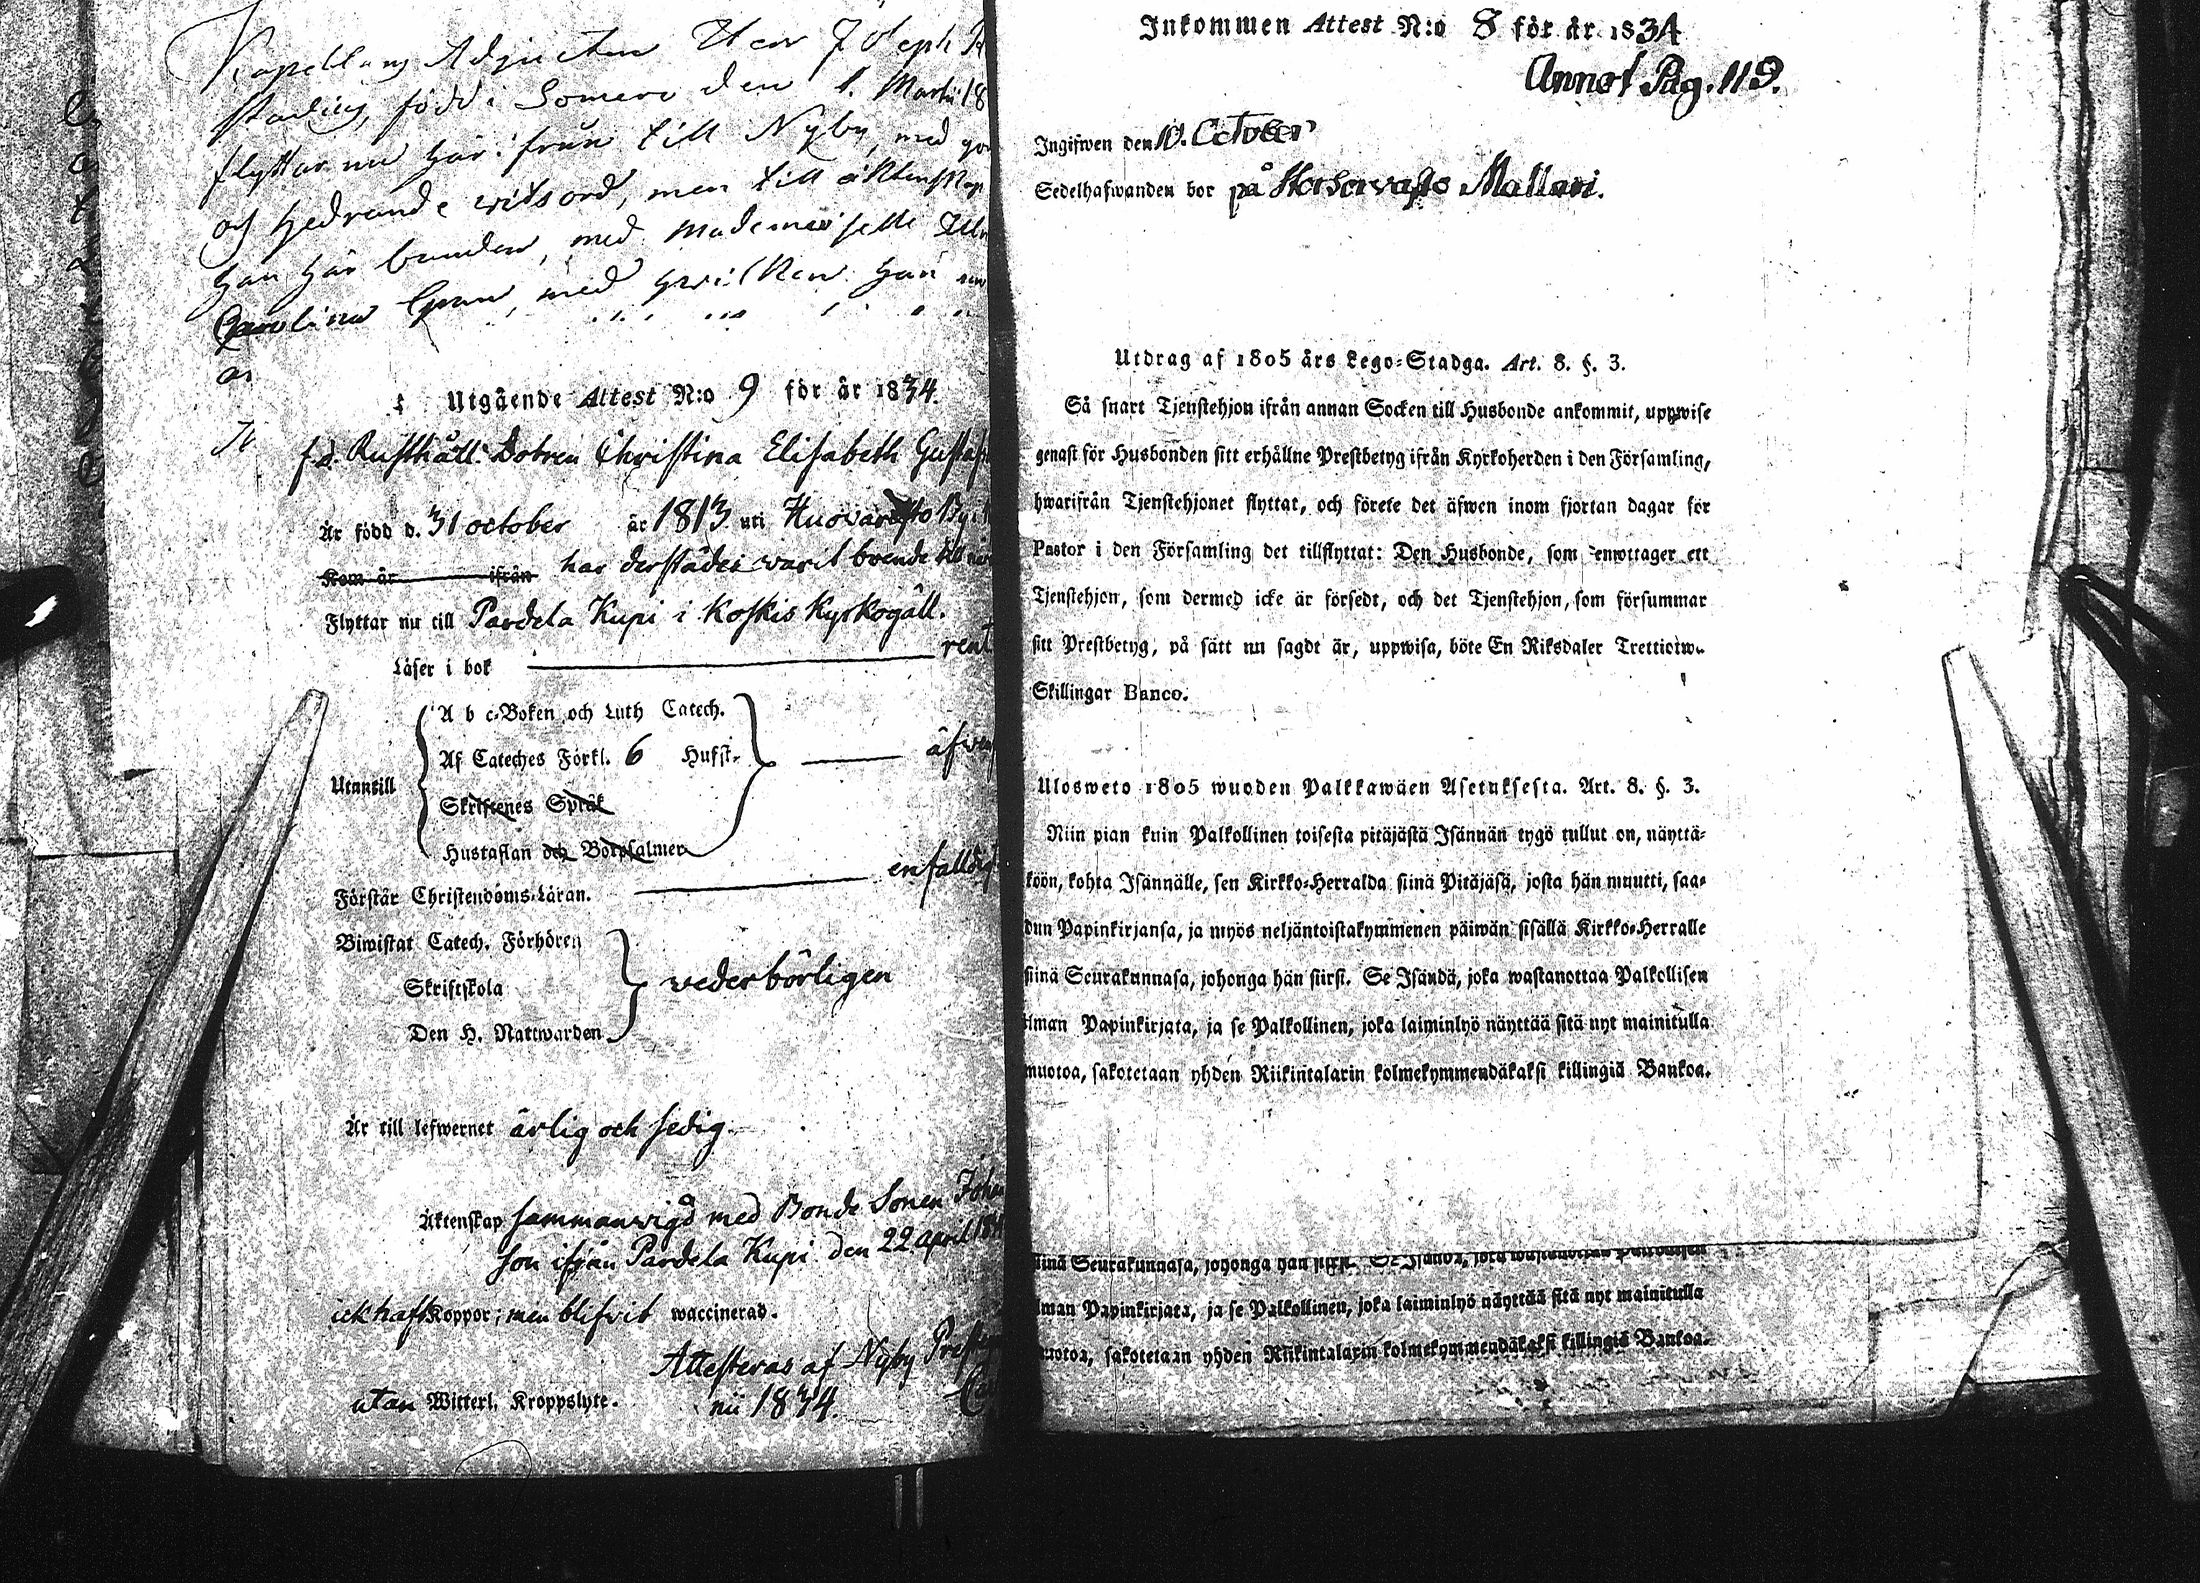 Kapellans Adjucten Herr Joseph
stadius, född i Somero den 1. Martii 18
flyttar nu här ifrån till Nyby, med
och hedrande witsord, men till äktenskap
han här bunden, med Mademoiselle
Carolina Gran, med hwilken han
Utgående Attest N:o 9 för år 1834.
f.d. Rusthåll. Dotren Christina Elisabeth
Är född d. 31 october år 1813 uti Huovarasto By
Kom år ifrån har derstädes warit boende till
Flyttar nu till Pardela Kupi i Koskis Kyrkogäll.
Läser i bok rent
Utantill
A b c-Boken och Luth Catech.
Af Cateches Förkl. 6 Hufst. äfwen
Skriftenes Språk
Hustaflan och Botpsalmer
Förstår Christendoms-Läran. enfalldigt
Biwistat Catech. Förhören
Skriftskola wederbörligen
Den H. Nattwarden
Är till lefwernet ärlig och sedig.
Äktenskap sammanwigd med Bonde Sonen Johan
son ifrån Pardela Kupi den 22 april 18
ick haft Koppor; men blifvit waccinerad.
Attesteras af Nyby
utan Witterl. Kroppslyte. nii 1834.
Inkommen Attest N:o 8 för år 1834
Annot Pag. 119.
Ingifwen den 10. October
Sedelhafwanden bor på Horsovasto Mallari.
Utdrag af 1805 års Lego-Stadga. Art. 8. §. 3.
Så snart Tjenstehjon ifrån annan Socken till Husbonde ankommit, uppwise
genast för Husbonden sitt erhållne Prestbetyg ifrån Kyrkoherden i den Församling,
hwarifrån Tjenstehjonet flyttat, och förete det äfwen inom fjortan dagar för
Pastor i den Församling det tillflyttat: Den Husbonde, som emottager ett
Tjenstehjon, som dermed icke är försedt, och det Tjenstehjon, som försummar
sitt Prestbetyg, på sätt nu sagdt är, uppwisa, böte En Riksdaler Trettiotwå
Skillingar Banco.
Ulosweto 1805 wuoden Palkkawäen Asetuksesta. Art. 8. §. 3.
Niin pian kuin Palkollinen toisesta pitäjästä Isännän tygö tullut on, näyttä-
köön, kohta Isännälle, sen Kirkko-Herralda siinä Pitäjäsä, josta hän muutti, saa-
dun Papinkirjansa, ja myös neljäntoistakymmenen päiwän sisällä Kirkko-Herralle
siinä Seurakunnasa, johonga hän siirsi. Se Isändä, joka wastanottaa Palkollisen
ilman Papinkirjata, ja se Palkollinen, joka laiminlyö näyttää sitä nyt mainitulla
muotoa, sakotetaan yhden Riikintalarin kolmekymmendäkaksi killingiä Bankoa.
siinä Seurakunnasa, johonga hän siirsi. Se Isändä, joka wastanottaa Palkollisen
lman Papinkirjata, ja se Palkollinen, joka laiminlyö näyttää sitä nyt mainitulla
uotoa, sakotetaan yhden Riikintalarin kolmekymmendäkaksi killingiä Bankoa.